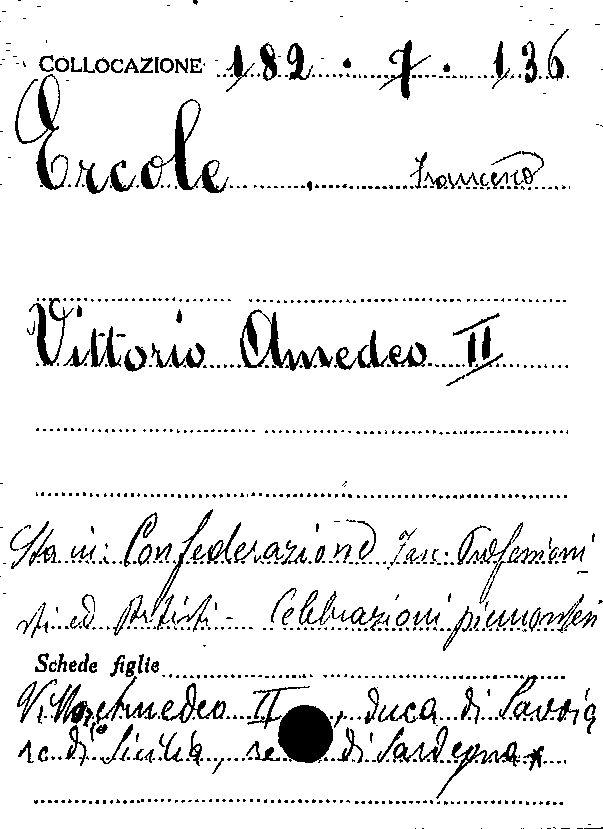 COLLOCAZIONE 182 . 7 . 136
Ercole . Francesco
Vittorio Amedeo II
Sta in: Confederazione Fasc. Professioni-
sti ed Artisti - Celebrazioni piemontesi
Schede figlie
Vittorio Amedeo II, duca di Savoia
re di Sicilia, re di Sardegna